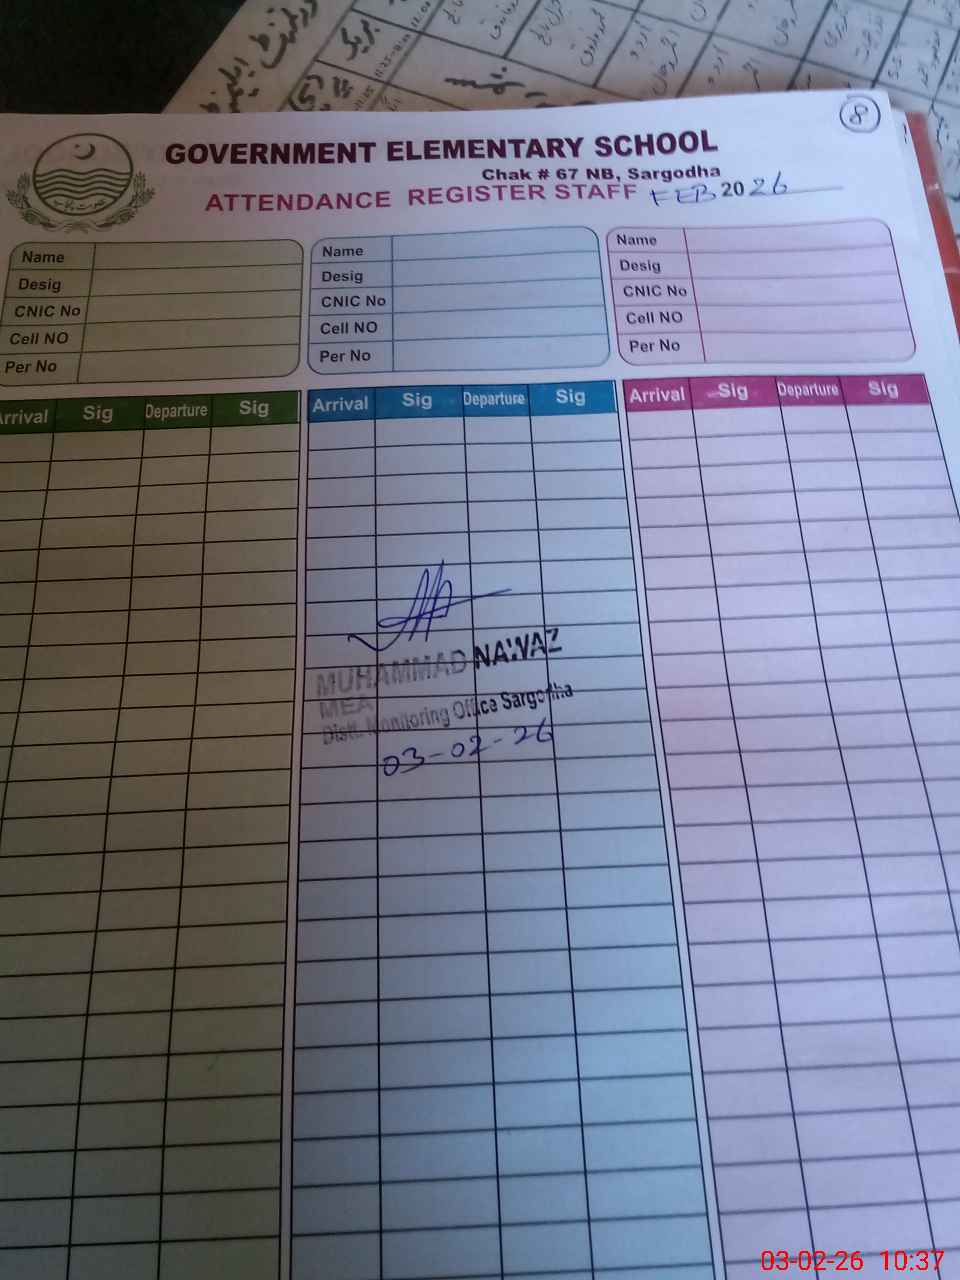 8
GOVERNMENT ELEMENTARY SCHOOL
Chak # 67 NB, Sargodha
ATTENDANCE REGISTER STAFF FEB 2026
Name
Desig
CNIC No
Cell NO
Per No
Name
Desig
CNIC No
Cell NO
Per No
Name
Desig
CNIC No
Cell NO
Per No
Arrival Sig Departure Sig
Arrival Sig Departure Sig
Arrival Sig Departure Sig
MUHAMMAD NAWAZ
MEA
Distt. Monitoring Office Sargodha
03-02-26
03-02-26 10:37